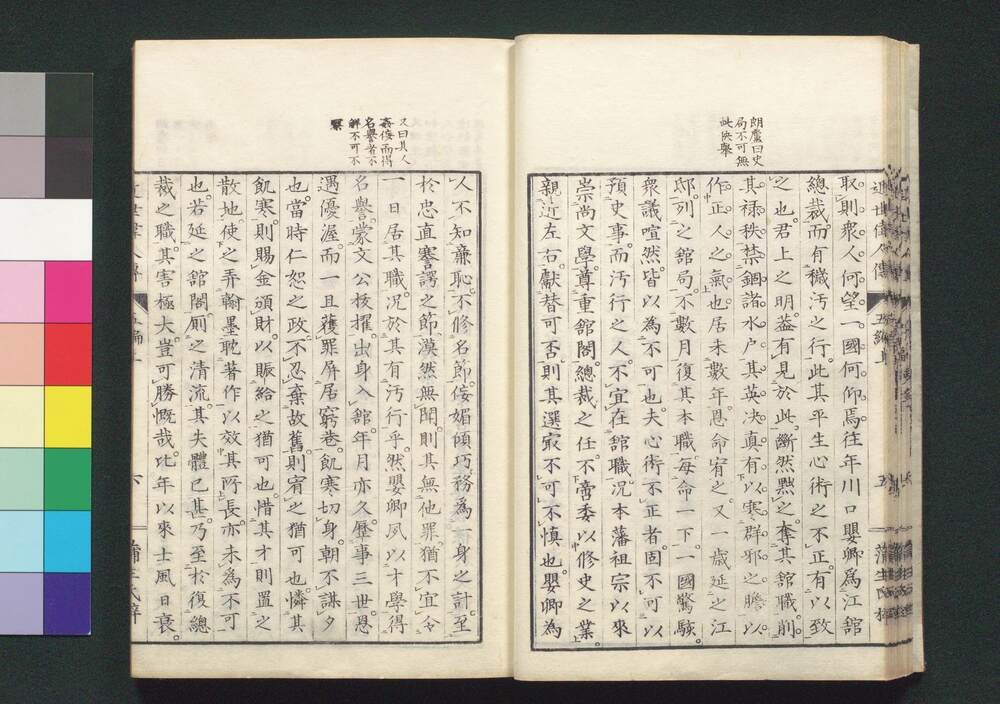 朗廬曰史
局不可無
此快舉
取則衆人何望一國何仰焉往年川口嬰卿爲江舘
總裁而有穢汚之行此其平生心術之不正有以致
之也君上之明葢有見於此斷然黜之奪其舘職削
其禄秩禁錮諸水戸其英决真有以寒群邪之膽以
作正人之氣也居未數年恩命宥之又一歳延之江
邸列之舘局不數月復其本職每命一下一國驚駭
衆議喧然皆以為不可也夫心術不正者固不可以
預史事而汚行之人不宜在舘職况本藩祖宗以來
崇尚文學尊重舘閣總裁之任不啻委以修史之業
親近左右獻替可否則其選㝡不可不慎也嬰卿為
又曰其人
姦佞而得
名譽者不
鮮不可不
察
人不知亷恥不修名節佞媚傾巧務為一身之計至
於忠直謇諤之節漠然無聞則其無他罪猶不宜令
一日居其職况於其有汚行乎然嬰卿夙以才學得
名譽蒙文公拔擢出身入舘年月亦久歷事三世恩
遇優渥而一旦獲罪屏居窮巷飢寒切身朝不謀夕
也當時仁恕之政不忍棄故舊則宥之猶可也憐其
飢寒則賜金頒財以賑給之猶可也惜其才則置之
散地使之弄翰墨耽著作以效其所長亦未為不可
也若延之舘閣厠之清流其失體已甚乃至於復總
裁之職其害極大豈可勝慨哉比年以來士風日衰